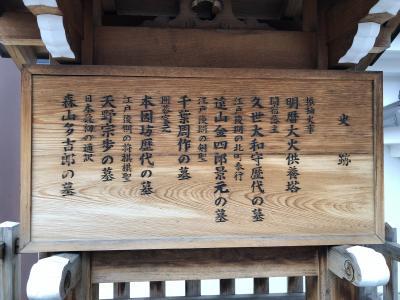 史跡
振袖火事
明暦大火供養塔
関宿藩主
久世大和守歴代の墓
江戸後期の北町奉行
遠山金四郎景元の墓
江戸後期の剣聖
千葉周作の墓
囲碁宗家
本因坊歴代の墓
江戸後期の将棋棋聖
天野宗歩の墓
日本最初の通訳
森山多吉郎の墓